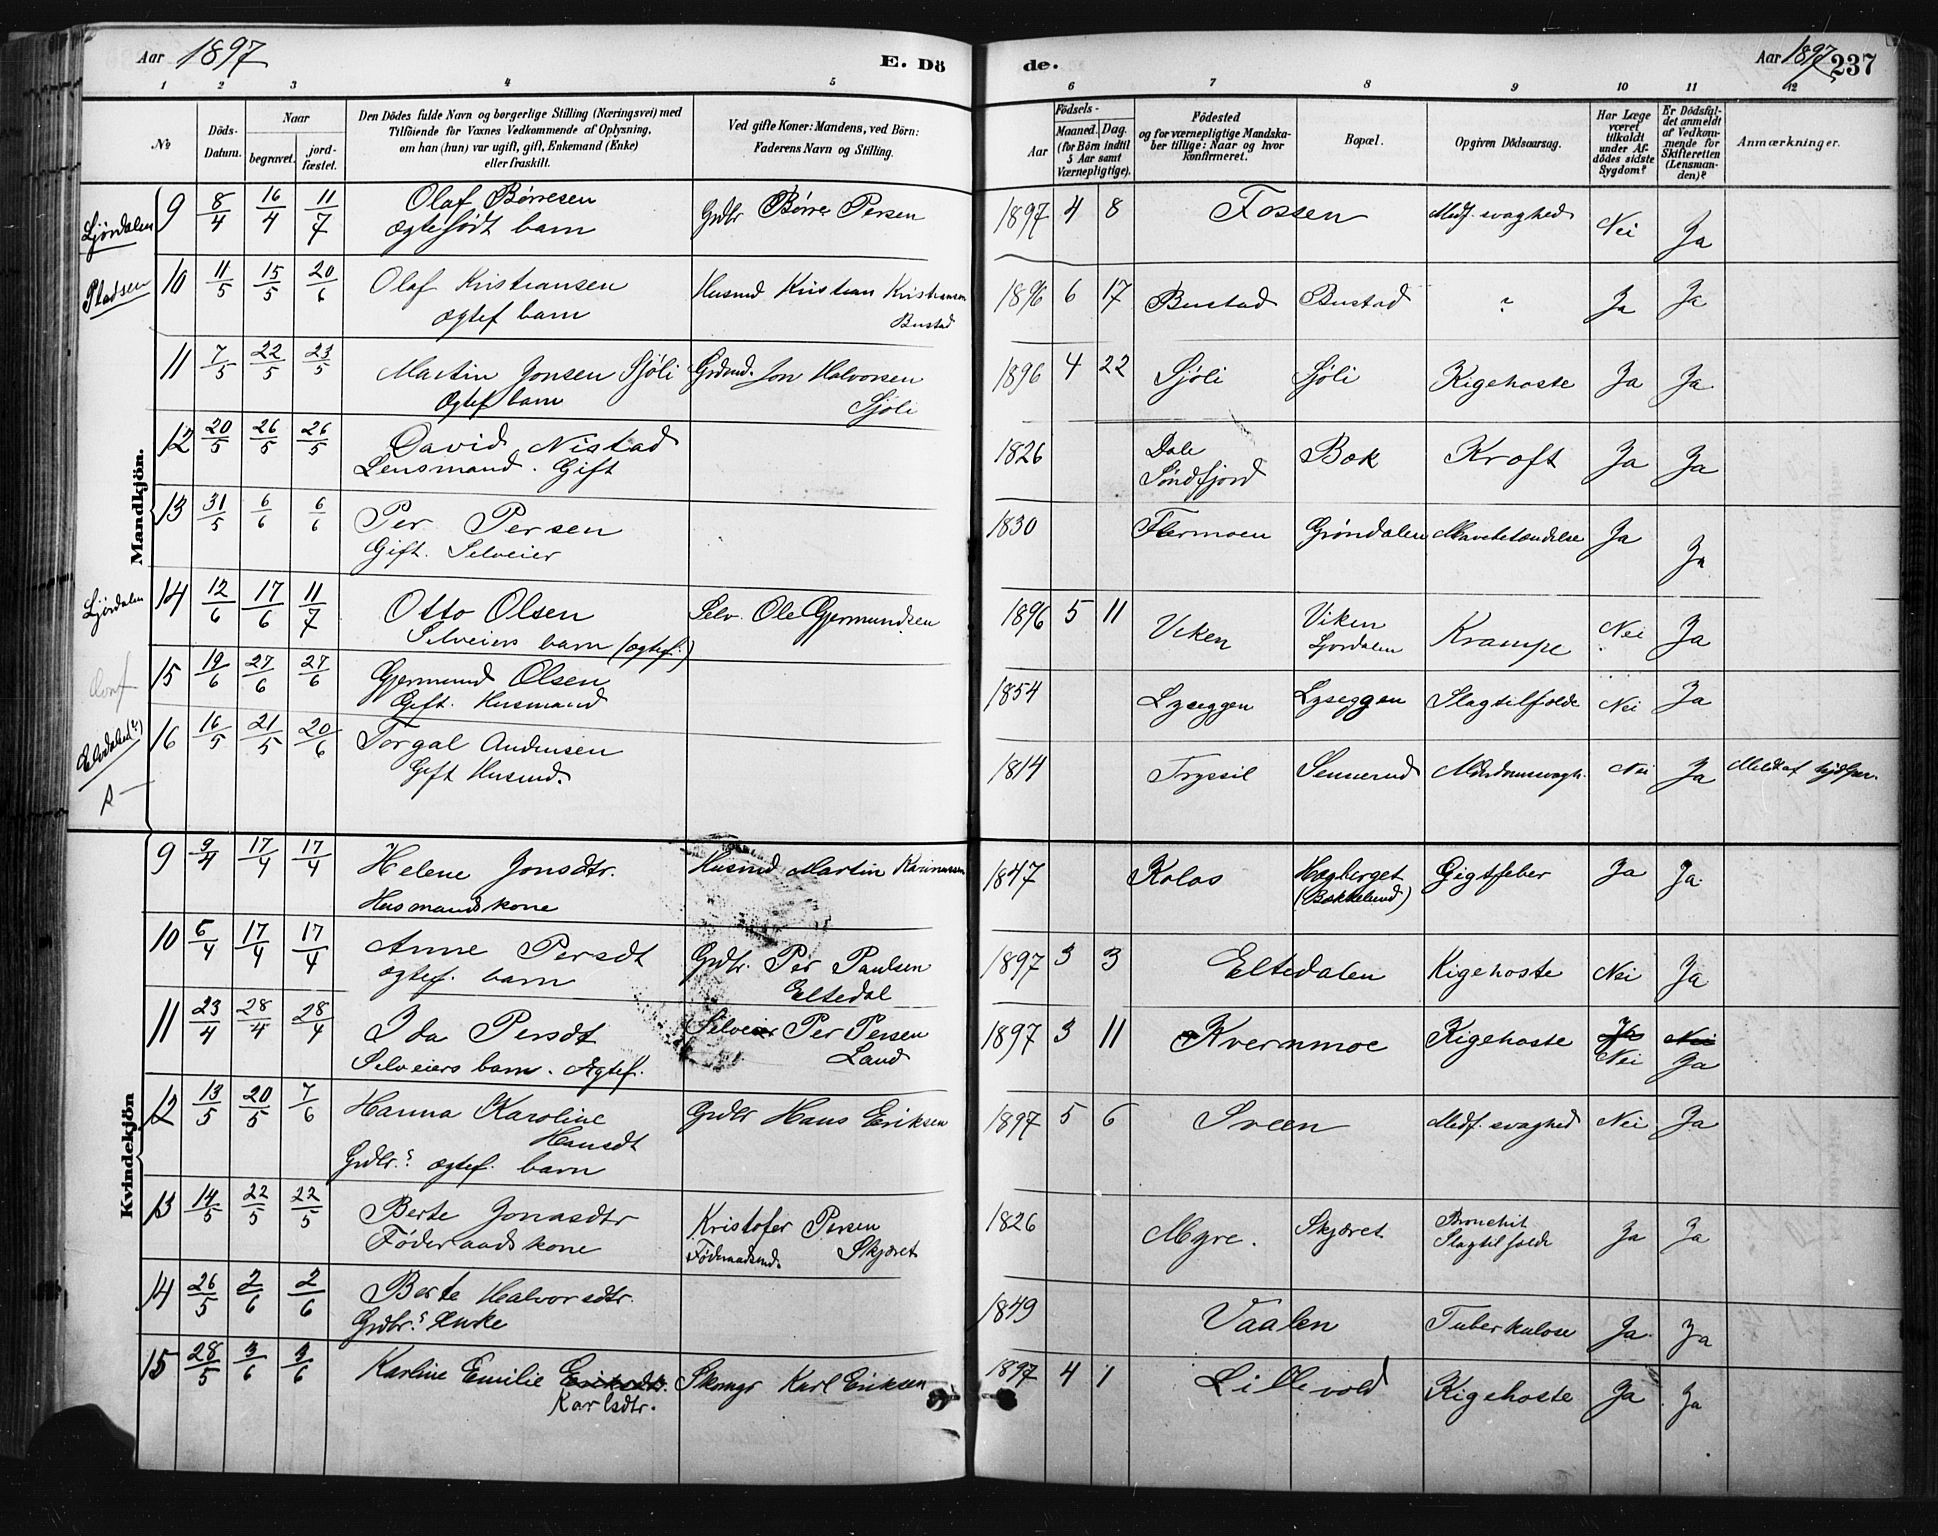 Aar 1897 E. Dö de. Aar 1897 237
1 2 3 4 5 6 7 8 9 10 11 12
№
Döds-Datum.
Naar
begravet.
jord-fæstet.
Den Dödes fulde Navn og borgerlige Stilling (Næringsvei) med
Tilföiende for Voxnes Vedkommende af Oplysning,
om han (hun) var ugift, gift, Enkemand (Enke)
eller fraskilt.
Ved gifte Koner: Mandens, ved Börn:
Faderens Navn og Stilling.
Födsels-
Aar
Maaned. Dag.
(for Börn indtil
5 Aar samt
Værnepligtige).
Födested
og for værnepligtige Mandska-
ber tillige: Naar og hvor
konfirmeret.
Bopæl.
Opgiven Dödsaarsag.
Har Læge
været
tilkaldt
under Af-
dödes sidste
Sygdom?
Er Dödsfal-
det anmeldt
af Vedkom-
mende for
Skifteretten
(Lensman-
den)?
Anmærkninger.
Mandkjön.
Ljørdalen 9 8/4 16/4 11/7 Olaf Børresen Grdbr Børre Persen 1897 4 8 Fossen Medf. svaghed Nei Ja
ægtefødt barn
Pladsen 10 11/5 15/5 20/6 Olaf Kristiansen Husmd Kristian Kristiansen 1896 6 17 Bustad Bustad ? Ja Ja
ægtef barn Bustad
11 7/5 22/5 23/5 Martin Jonsen Sjöli Grdmd. Jon Halvorsen 1896 4 22 Sjöli Sjöli Kigehoste Ja Ja
Ægtef barn Sjöli
12 20/5 26/5 26/5 David Nistad 1826 Dale Bæk Kræft Ja Ja
Lensmand. Gift Søndfjord
13 31/5 6/6 6/6 Per Persen 1830 Flermoen Grøndalen Mavebetændelse Ja Ja
Gift. Selveier
Ljørdalen 14 12/6 17/6 11/7 Otto Olsen Selv. Ole Gjermundsen 1896 5 11 Viken Viken Krampe Nei Ja
Selveiers barn (ægtef.) Ljørdalen
15 19/6 27/6 27/6 Gjermund Olsen 1854 Lyseggen Lyseggen Slagtilfælde Nei Ja
Gift. Husmand
Elvdalen(?) 16 16/5 21/5 20/6 Torgal Andersen 1814 Trysil Sennerud Alderdomssvagh. Nei Ja
Gift Husmd.
Kvindekjön
9 9/4 17/4 17/4 Helene Jonsdtr. Husmd Martin Karinussen 1847 Kolos Hagberget Gigtfeber Ja Ja.
Husmandskone (Bakkelund)
10 6/4 17/4 17/4 Anne Persdt Grdbr. Per Paulsen 1897 3 3 Eltedalen Kigehoste Nei Ja
ægtef. barn Eltedal
11 23/4 28/4 28/4 Ida Persdt Selveier Per Persen 1897 3 11 Kvernmoe Kigehoste Ja Nei
Selveiers barn. Ægtef. Land Nei Ja
12 13/5 20/5 7/6 Hanna Karoline Grdbr Hans Eriksen 1897 5 6 Sveen Medf. svaghed Nei Ja
Hansdt
Grdbrs ægtef. barn
13 14/5 22/5 22/5 Berte Jonasdtr Kristofer Persen 1826 Myre. Skjæret Bronchit Ja Ja
Føderaadskone Føderaadsmd. Skjæret Slagtilfælde
14 26/5 2/6 2/6 Berte Halvorsdtr. 1849 Vaalen Tuberkulose Ja Ja
Grdbrs Enke
15 28/5 3/6 3/6 Karline Emilie Eriksdtr. Skomgr Karl Eriksen 1897 4 1 Lillevold Kigehoste Ja Ja
Karlsdtr.